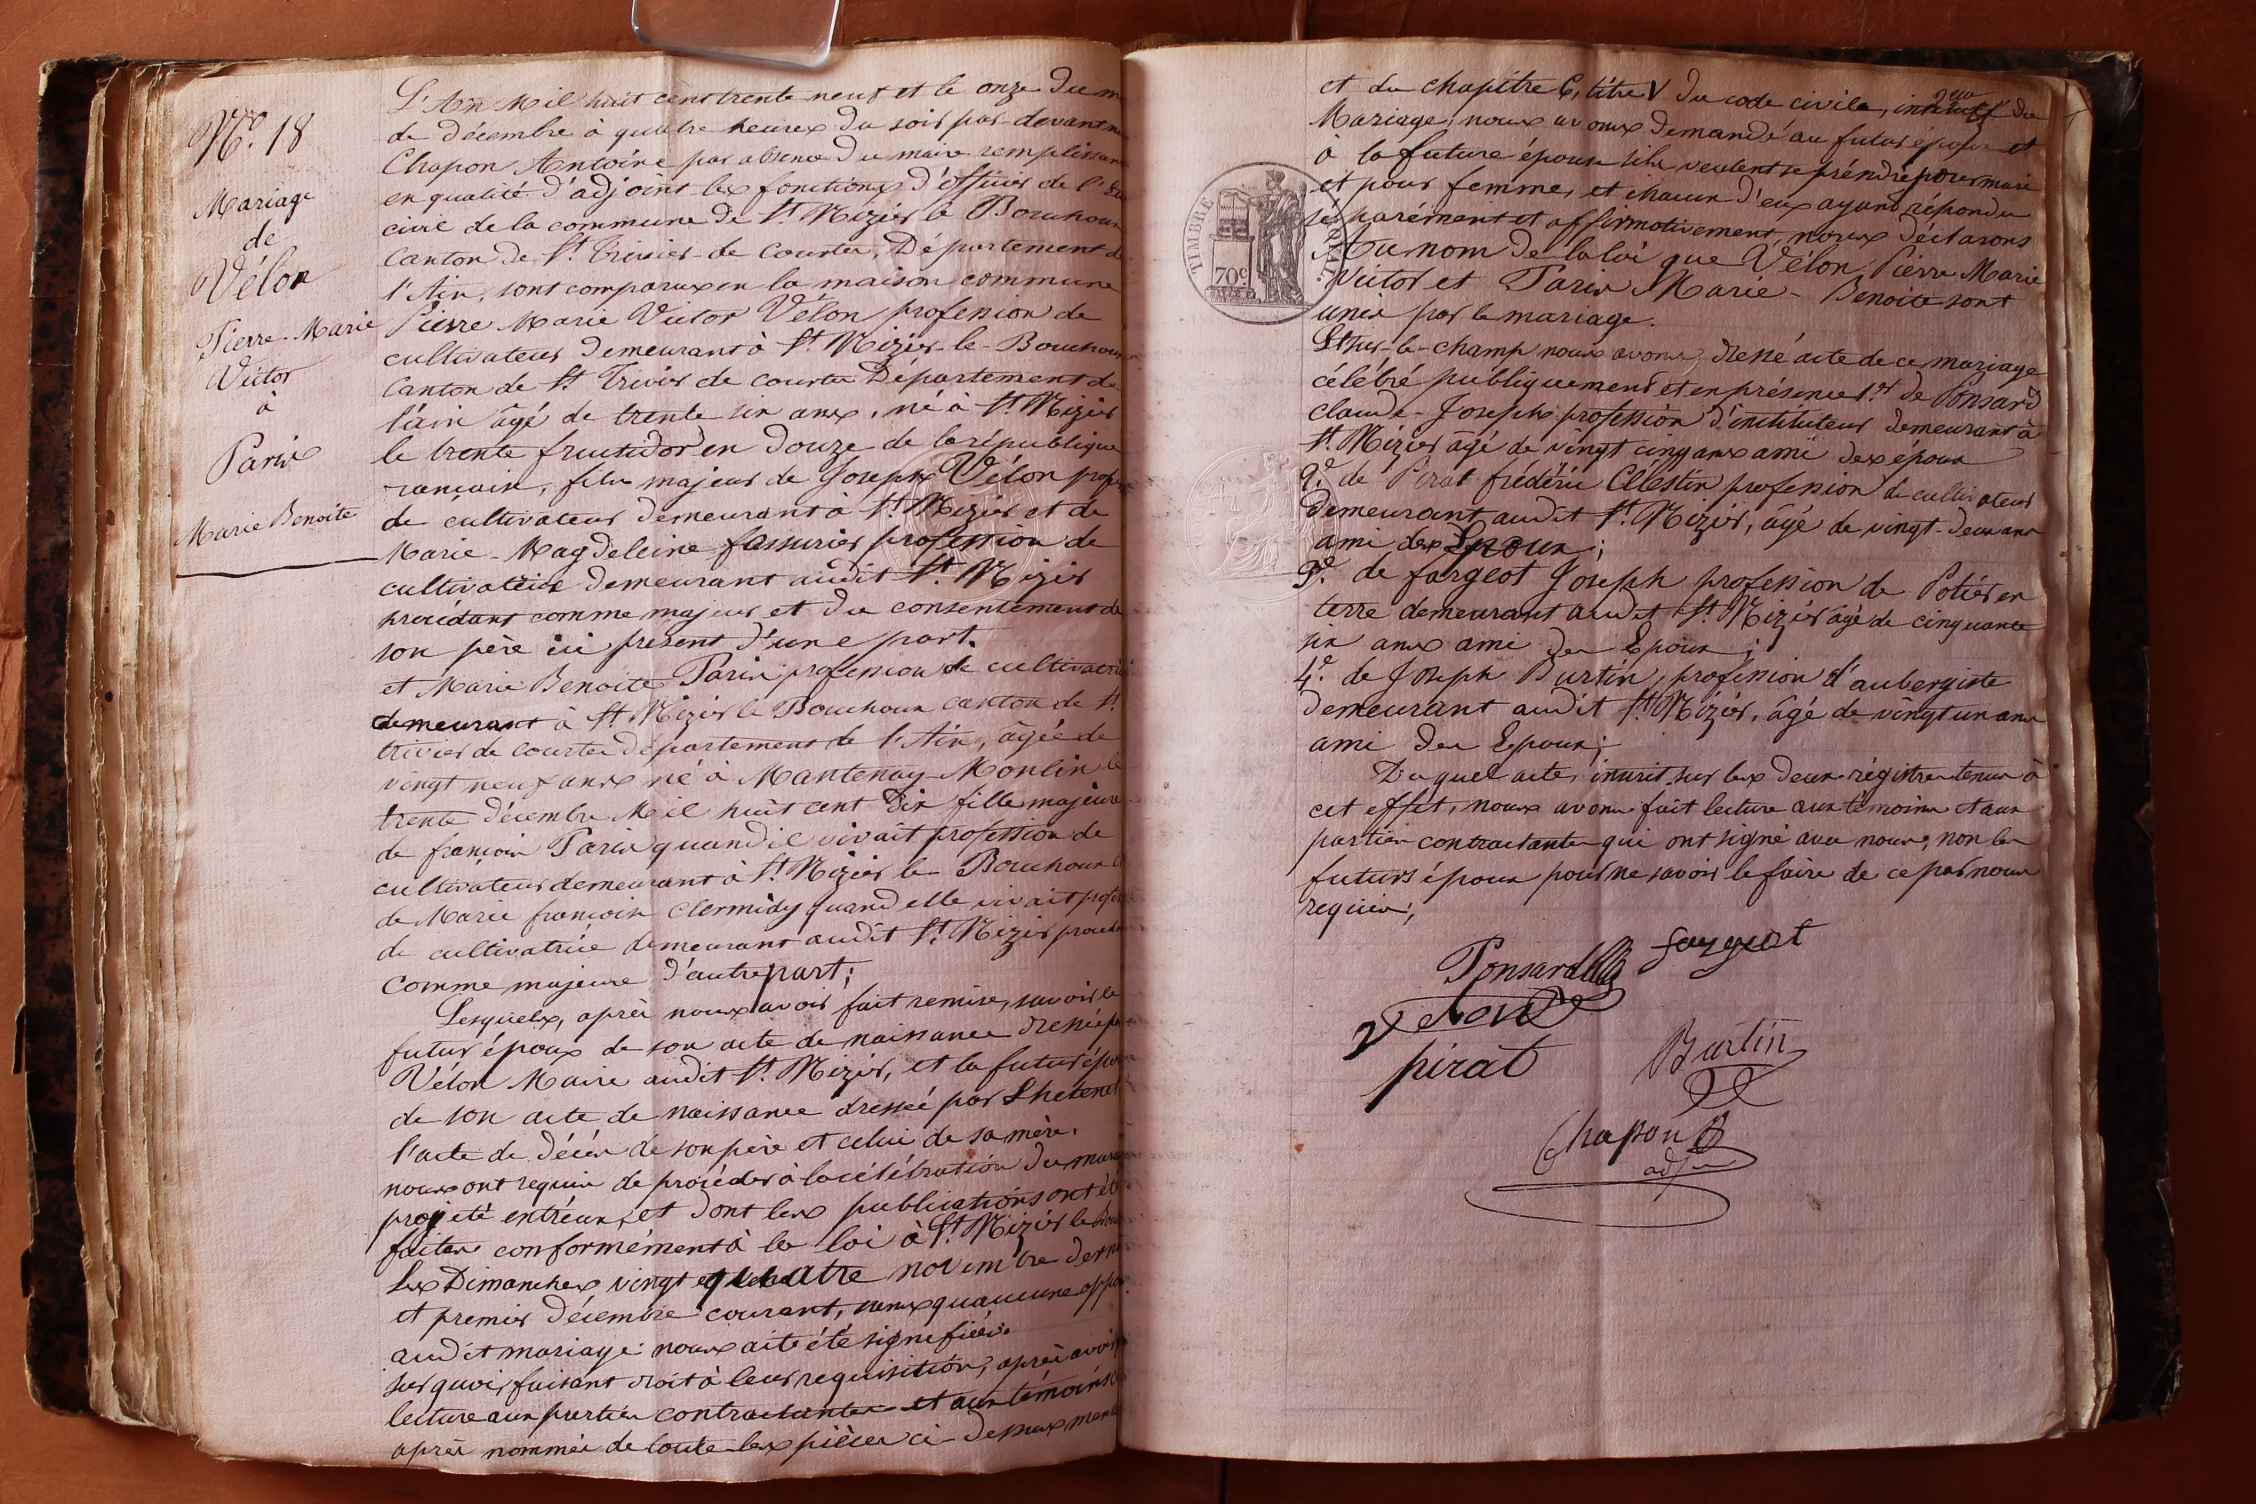 N.º 18
Mariage
de
Vélon
Pierre-Marie
Victor
à
Paris
Marie Benoite
L'An Mil huit cent trente neuf et le onze du m
de décembre à quatre heures du soir par devant n
Chapon Antoine par absence du maire remplissan
en qualité d'adjoint les fonctions d'officier de l'éta
civil de la commune de St. Nizier le Bouchoux
canton de St. Trivier-de Courtes, Département de
l'Ain, sont comparus en la maison commune
Pierre Marie Victor Vélon profession de
cultivateur demeurant à St. Nizier-le-Bouchoux
Canton de St Trivier de courtes Département de
l'ain âgé de trente six ans, né à St. Nizier
le trente fructidor en douze de la république
rançaise, fils majeur de Joseph Vélon prof
de cultivateur demeurant à St. Nizier et de
Marie-Magdeleine fassurier profession de
cultivatrice demeurant audit St. Nizier
procédant comme majeur et du consentement de
son père ici présent d'une part.
et Marie Benoite Paris profession de cultivatri
demeurant à St. Nizier le Bouchoux canton de St.
trivier de courtes département de l'Ain, âgée de
vingt neuf ans né à Mantenay-Monlin le
trente décembre Mil huit cent dix fille majeure
de françois Paris quand il vivait profession de
cultivateur demeurant à St. Nizier le Bouchoux
de Marie françoise Clermidy quand elle vivait prof
de cultivatrice demeurant audit St. Nizier procéda
comme majeure d'autre part;
Lesquels, après nous avoir fait remise, savoir le
futur époux de son acte de naissance dressé p
Vélon Maire audit St. Nizier, et la future épou
de son acte de naissance dressé par
l'acte de décès de son père et celui de sa mère.
nous ont requis de procéder à la célébration du mar
projeté entr'eux, et dont les publications ont ét
faites conformément à la loi à St. Nizier le Bou
les Dimanches vingt quatre novembre dern
et premier décembre courant, sans qu'aucune oppo
audit mariage nous aite été signifiée.
sur quoi, faisant droit à leur requisition, après avoi
lecture aux parties contractantes et aux témoins
après nommés de toute les pièces ci-dessus men
et du chapitre 6, titre V du code civile, intitulé du
Mariage, nous avons demandé au futur époux et
à la future épouse s'ils veulent se prendre pour mari
et pour femme, et chacun d'eux ayant répondu
séparément et affirmativement, nous déclarons
Au nom de la loi que Vélon Pierre Marie
Victor et Paris Marie-Benoite sont
unis par le mariage.
Et sur-le-champ nous avons dressé acte de ce mariage
célébré publiquement et en présence 1er de Ponsard
claude-Joseph profession d'instituteur demeurant à
St. Nizier âgé de vingt cinq ans ami des époux
2e. de Pirat frédéric Célestin profession de cultivateur
demeurant audit St. Nizier, âgé de vingt-deux ans
ami des Epoux;
3e. de fargeot Joseph profession de Potier en
terre demeurant audit St. Nizier âgé de cinquante
six ans ami des Epoux;
4e. de Joseph Burtin, profession d'aubergiste
demeurant audit St. Nizier, âgé de vingt un ans
ami des Epoux;
Du quel acte, inscrit sur les deux régistres tenus à
cet effet, nous avons fait lecture aux témoins et aux
parties contractantes qui ont signé avec nous, non les
futurs époux pour ne savoir le faire de ce par nous
requis;
Ponsard fargeot
Velon
pirat Burtin
Chapon
adj
TIMBRE
70c.